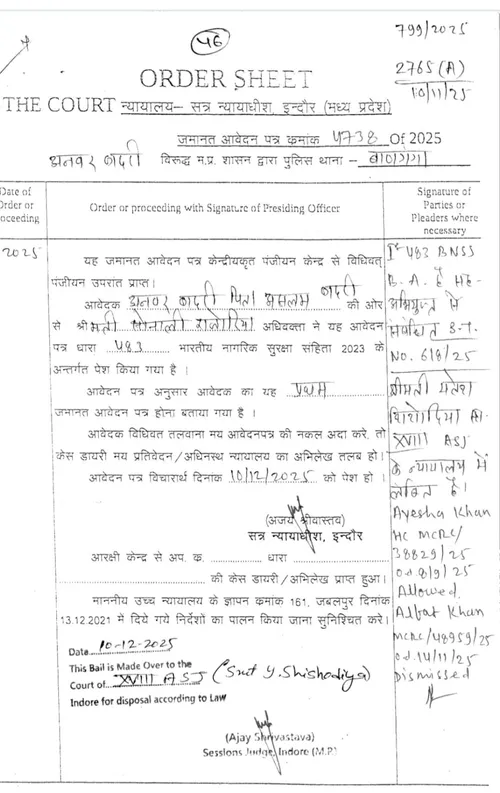 799/2025
46
2765 (A)
10/11/25
ORDER SHEET
THE COURT न्यायालय– सत्र न्यायाधीश, इन्दौर (मध्य प्रदेश)
जमानत आवेदन पत्र कमांक 4738 Of 2025
अनवर कादरी विरूद्ध म.प्र. शासन द्वारा पुलिस थाना – बाणगंगा
Date of
Order or
oceeding
Order or proceeding with Signature of Presiding Officer
Signature of
Parties or
Pleaders where
necessary
2025
यह जमानत आवेदन पत्र केन्द्रीयकृत पंजीयन केन्द्र से विधिवत्
पंजीयन उपरांत प्राप्त।
आवेदक अनवर कादरी पिता असलम कादरी की ओर
से श्रीमती सोनाली अधिवक्ता ने यह आवेदन
पत्र धारा 483 भारतीय नागरिक सुरक्षा संहिता 2023 के
अन्तर्गत पेश किया गया है ।
आवेदन पत्र अनुसार आवेदक का यह प्रथम
जमानत आवेदन पत्र होना बताया गया है ।
आवेदक विधिवत तलवाना मय आवेदनपत्र की नकल अदा करे, तो
केस डायरी मय प्रतिवेदन/अधिनस्थ न्यायालय का अभिलेख तलब हो।
आवेदन पत्र विचारार्थ दिनांक 10/12/2025 को पेश हो ।
(अजय श्रीवास्तव)
सत्र न्यायाधीश, इन्दौर
आरक्षी केन्द्र से अप. क. धारा
की केस डायरी/अभिलेख प्राप्त हुआ।
माननीय उच्च न्यायालय के ज्ञापन कमांक 161, जबलपुर दिनांक
13.12.2021 में दिये गये निर्देशों का पालन किया जाना सुनिश्चित करे।
Date 10-12-2025
This Bail is Made Over to the
Court of XVIII ASJ (Smt Y. Shishodiya)
Indore for disposal according to Law
(Ajay Shrivastava)
Sessions Judge, Indore (M.P.)
Ist 483 BNSS
B.A. है सह-
अभियुक्त से
संबंधित S.T.
No. 618/25
श्रीमती
XVIII ASJ
के न्यायालय में
लंबित है।
Ayesha Khan
HC MCRC/
38829/25
o.d 8/9/25
Allowed.
Khan
MCRC/48959/25
o.d. 14/11/25
Dismissed